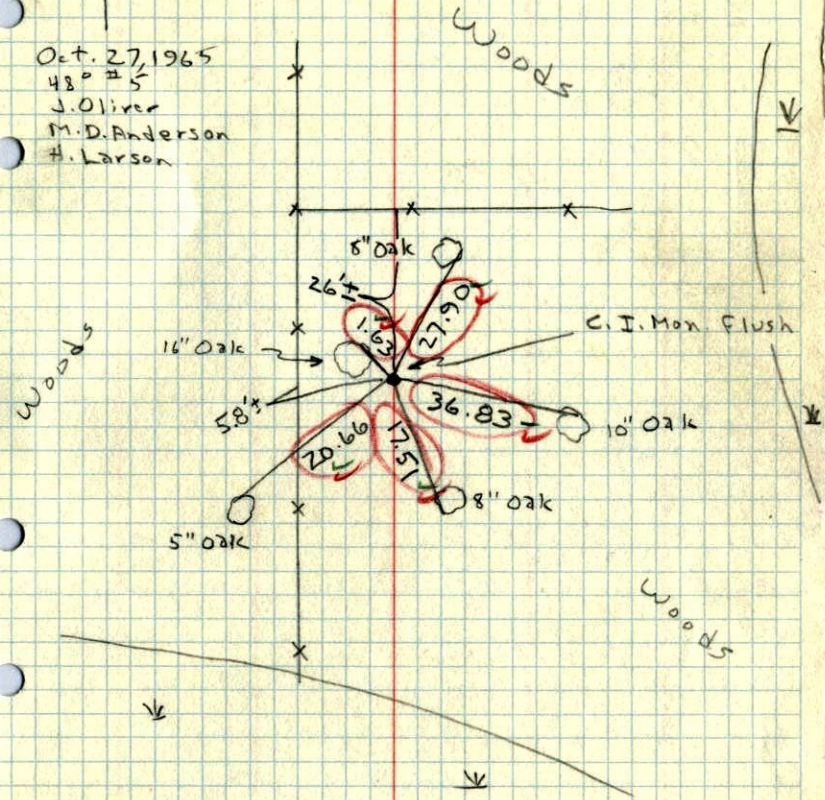 Oct. 27, 1965
48° #5
J. Oliver
M.D. Anderson
H. Larson
Woods
8" Oak
26'±
27.90
1.63
C.I. Mon. Flush
16" Oak
Woods
5.8'±
36.83
10" Oak
20.66
17.51
8" Oak
5" Oak
Woods